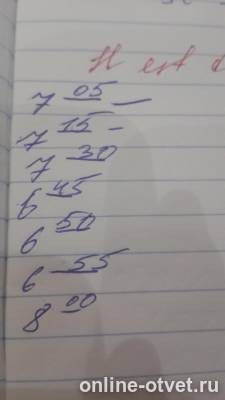 Il est
7 05 —
7 15 -
7 30
6 45
6 50
6 55
8 00
online-otvet.ru